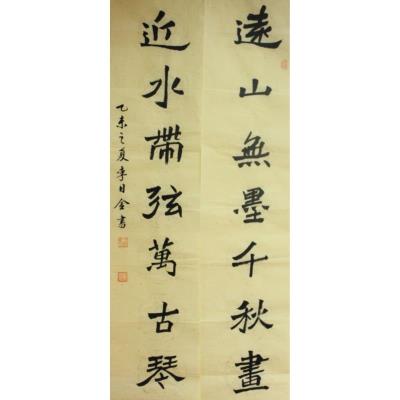 遠山無墨千秋畫
近水帶弦萬古琴
乙未之夏李日全書